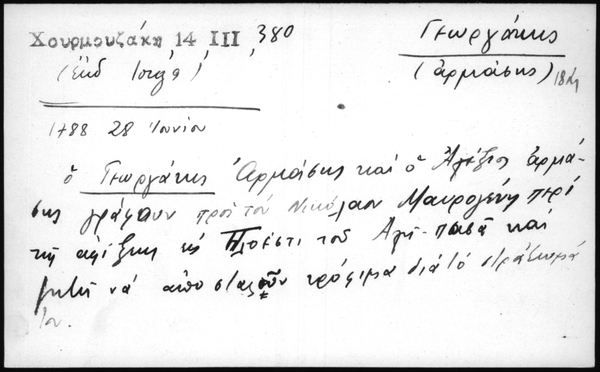 Χουρμουζάκη 14 III, 380
Γεωργάκης
(ἀρμάσης)
(ἔκδ
1788 28 Ἰουνίου
ὁ Γεωργάκης Ἀρμάσης καὶ ὁ Ἀλέξιος ἀρμά-
σης γράφουν πρὸς τὸν Νικόλαον Μαυρογένη περί
τῆς ἀφίξεως εἰς Πλοέστι τοῦ Ἀλῆ-πασᾶ καὶ
νά ἀποσταλοῦν τρόφιμα διὰ τό στράτευμά
του.